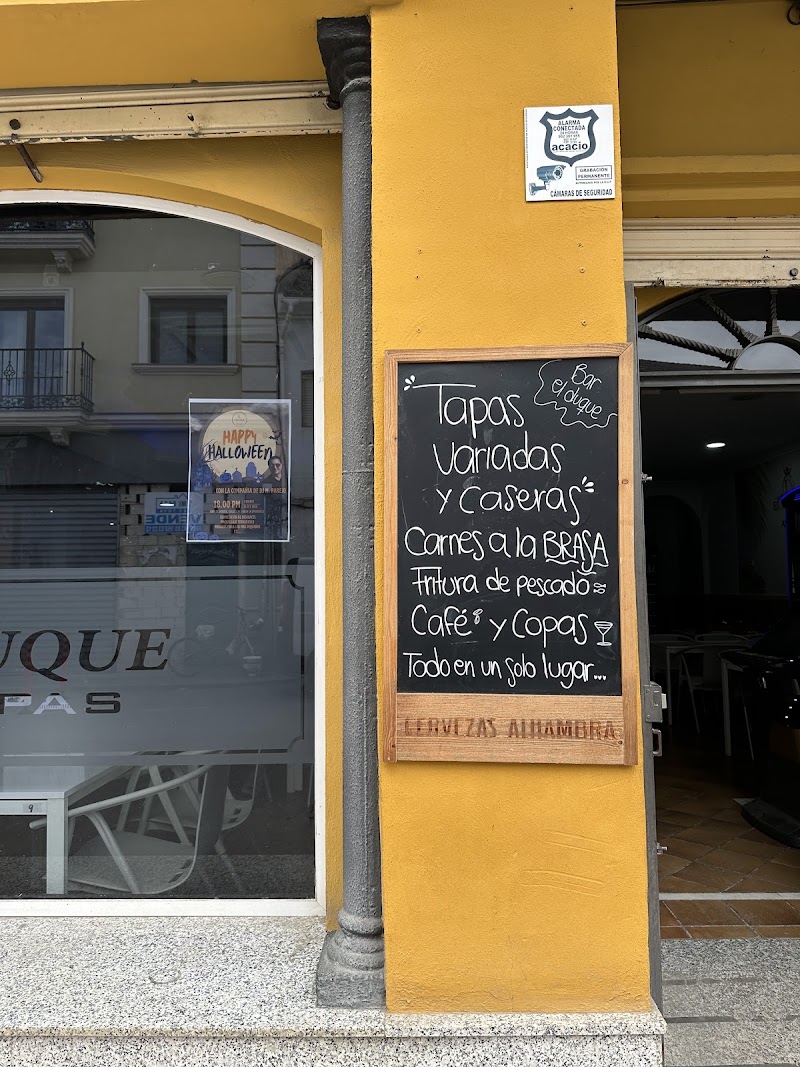 ALARMA
CONECTADA
acacio
GRABACIÓN
PERMANENTE
CÁMARAS DE SEGURIDAD
"Tapas
Variadas
y Caseras"
Bar
el duque
Carnes a la BRASA
Fritura de pescado
Café y Copas
Todo en un solo lugar...
CERVEZAS ALHAMBRA
HAPPY
HALLOWEEN
CON LA COMPAÑIA DE DJ
18.00 PM
VENDE
UQUE
PAS
9